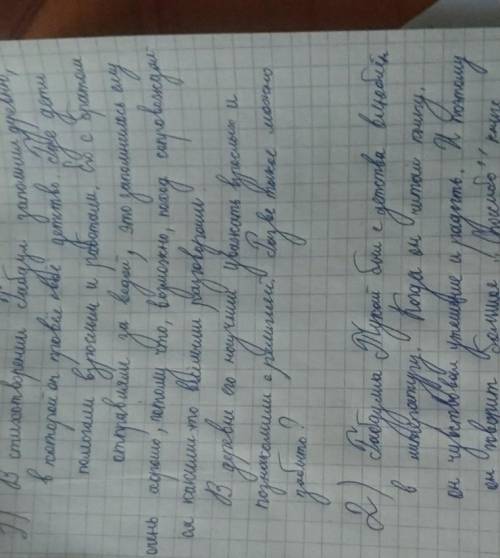 1) В стихотворении Габдулла запомнил деревню,
в которой он провёл своё детство. Где дети
помогали взрослым и работали. Его с братом
отправляли за водой, это запомнилось ему
очень хорошо, потому что, возможно, поход сопровождал-
ся какими-то весёлыми разговорами.
В дервне его научили уважать взрослых и
познакомили с религией. Разве такое можно
забыть?
2) Габдулла Тукай был с детства влюблён
в литературу. Когда он читал книгу,
он чувствовал утешение и радость. И поэтому
он говорит